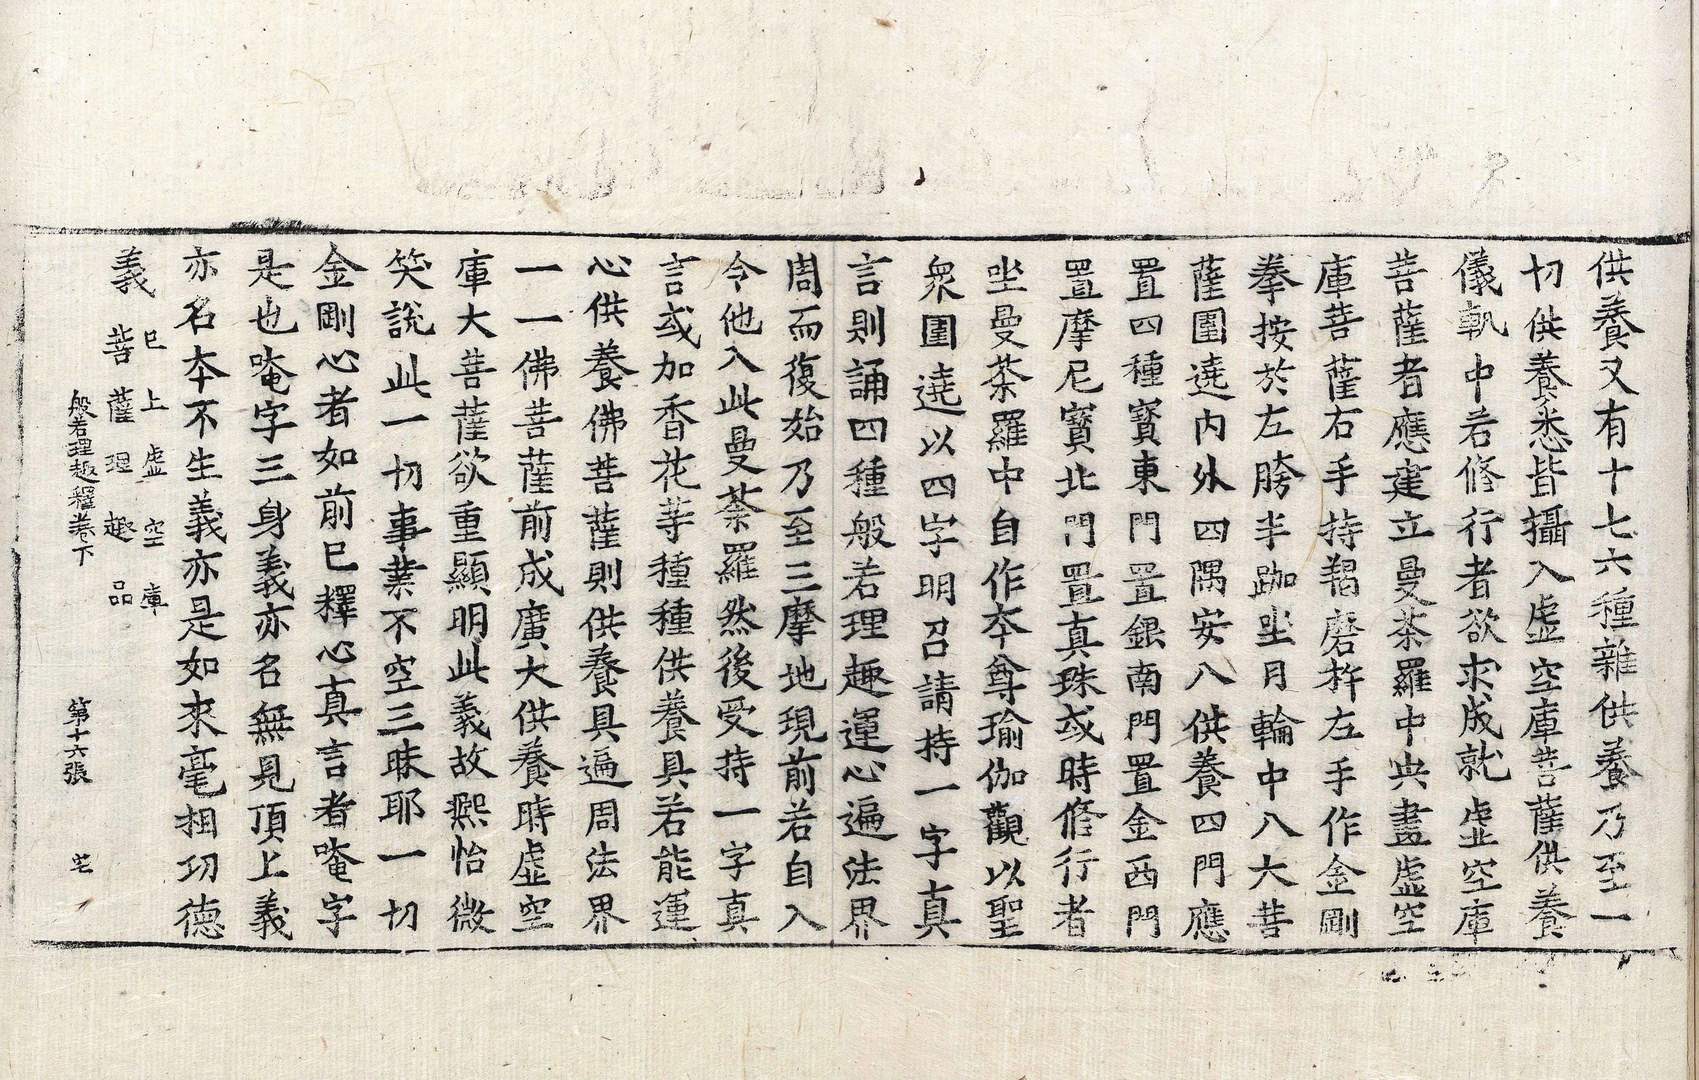 供養又有十七六種雜供養乃至一
切供養悉皆攝入虛空庫菩薩供養
儀軌中若修行者欲求成就虛空庫
菩薩者應建立曼荼羅中央畫虛空
庫菩薩右手持羯磨杵左手作金剛
拳按於左胯半跏坐月輪中八大菩
薩圍遶內外四隅安八供養四門應
置四種寶東門置銀南門置金西門
置摩尼寶北門置真珠或時修行者
坐曼荼羅中自作本尊瑜伽觀以聖
衆圍遶以四字明召請持一字真
言則誦四種般若理趣運心遍法界
周而復始乃至三摩地現前若自入
令他入此曼荼羅然後受持一字真
言或加香花等種種供養具若能運
心供養佛菩薩則供養具遍周法界
一一佛菩薩前成廣大供養時虛空
庫大菩薩欲重顯明此義故熙怡微
笑說此一切事業不空三昧耶一切
金剛心者如前已釋心真言者唵字
是也唵字三身義亦名無見頂上義
亦名本不生義亦是如來毫相功德
義
已上虛空庫
菩薩理趣品
般若理趣釋卷下 第十六張 宅